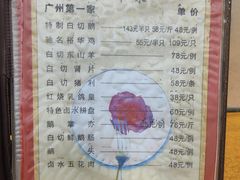 广州第一家 单价
特制白切鹅 143元半只 58元/斤 48元/例
驰名裕华鸡 55元/半只 109元/只
白切东山羊 78元/例
白切肾片 48元/例
白切猪利 58元/例
红烧乳鸽皇 38元/只
特色卤水拼盘 60元/例
鹅掌亦 78元/例
白切鲜鹅肠 48元/例
鹅头
卤水五花肉 48元/例